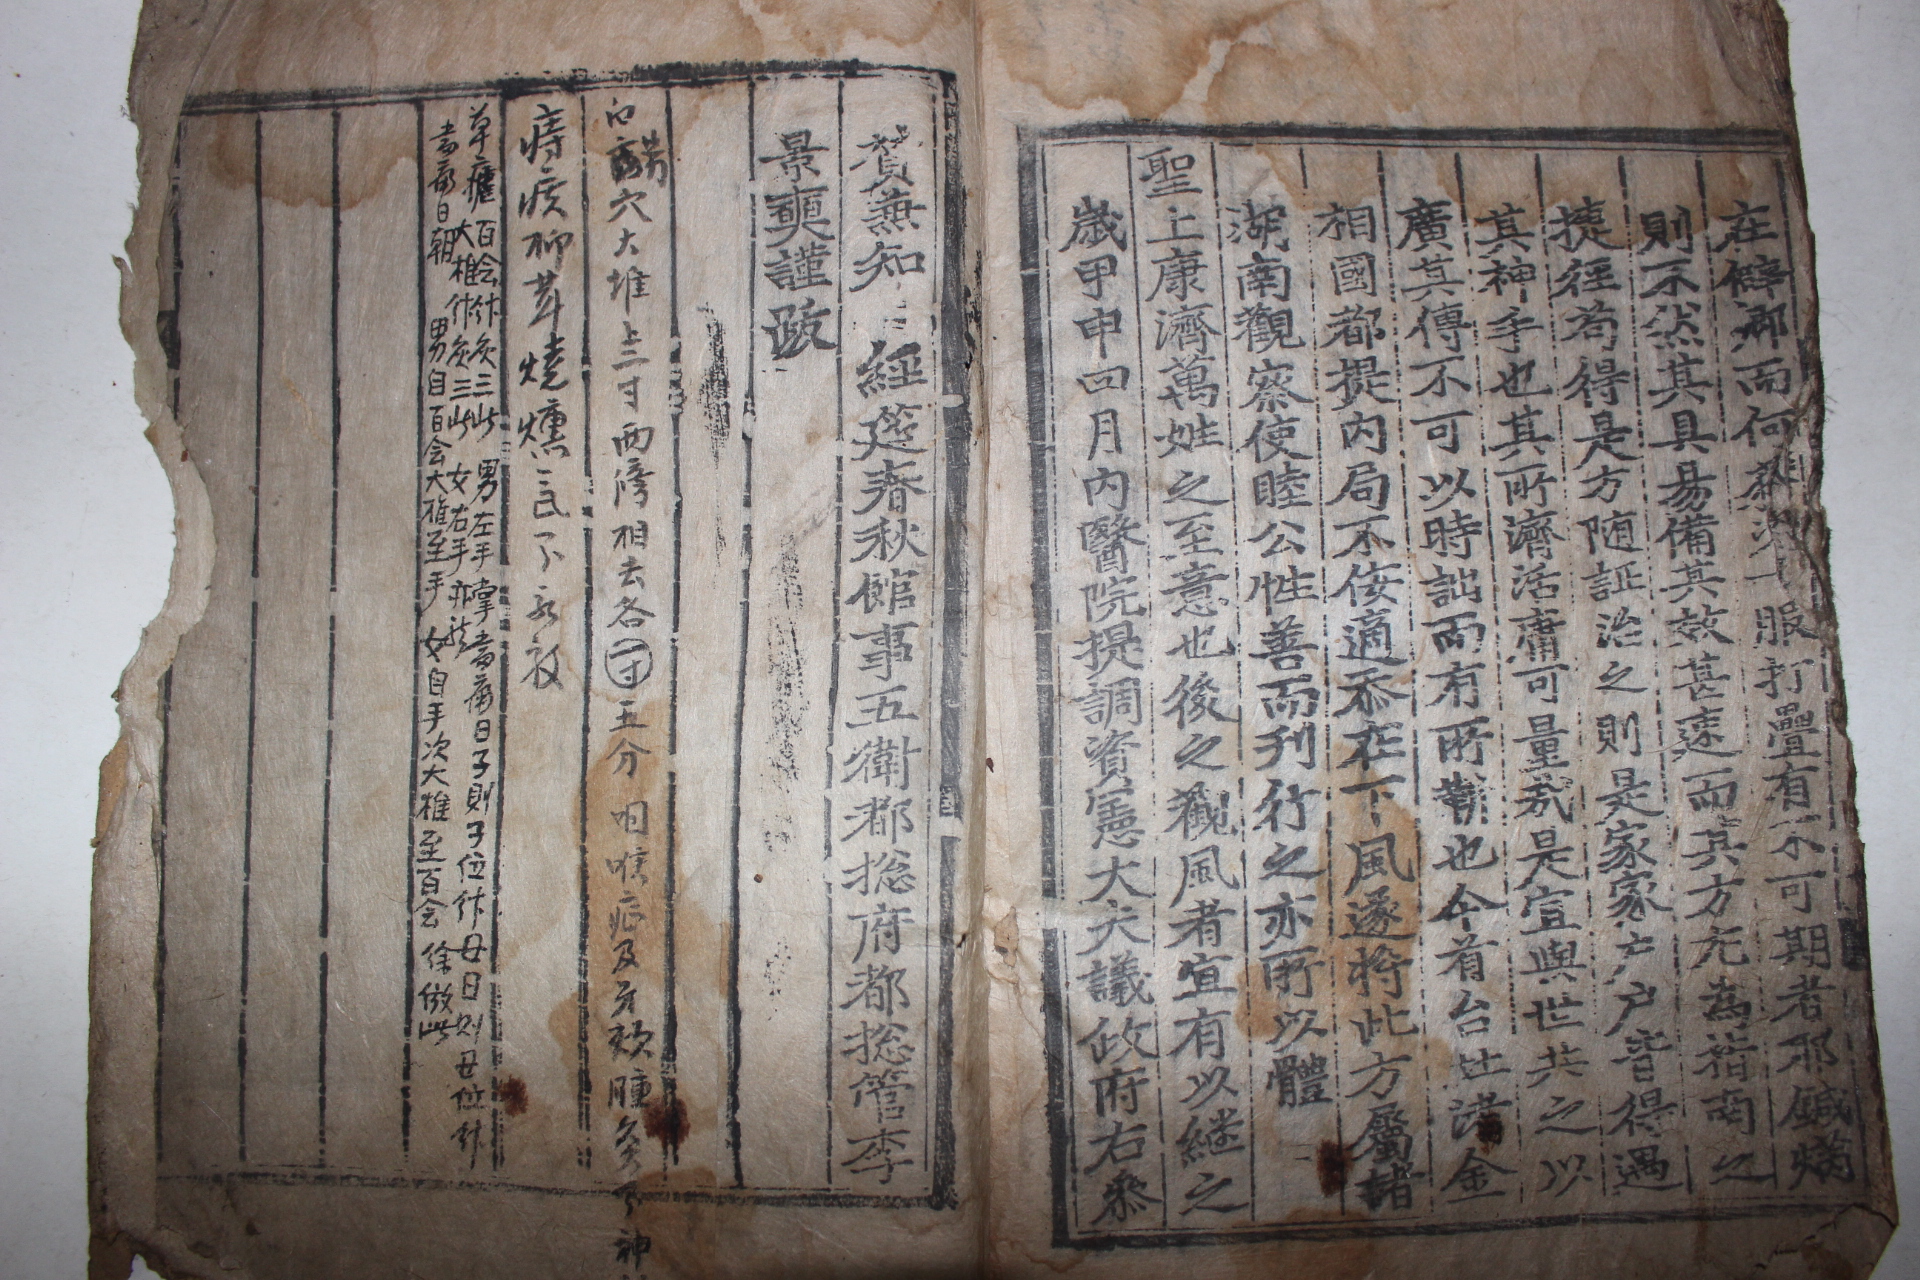 在僻鄕而何 服打疊有不可期者耶鍼焫
則不然其具易備其效甚速而其方尤爲指南之
捷徑苟得是方随証治之則是家家戶戶皆得遇
其神手也其所濟活庸可量哉是宜與世共之以
廣其傳不可以時詘而有所靳也今看台監諸金
相國都提內局不佞適忝在下風遂將此方屬諸
湖南觀察使睦公性善而刋行之亦所以體
聖上康濟萬姓之至意也後之觀風者宜有以繼之
歲甲申四月內醫院提調資憲大夫議政府右叅
贊兼知 經筵春秋館事五衛都捴府都捴管李
景奭謹跋
穴大堆上三寸兩傍相去各一寸五分咽喉症及牙頰腫灸 神
痔疾 茸燒燻
草瘧百会針灸三此男左手掌 痛日子則子位針母日則母位針
大椎針灸三此女右手
痛日朝 男自百会大椎至手女自手次大椎至百会徐倣此